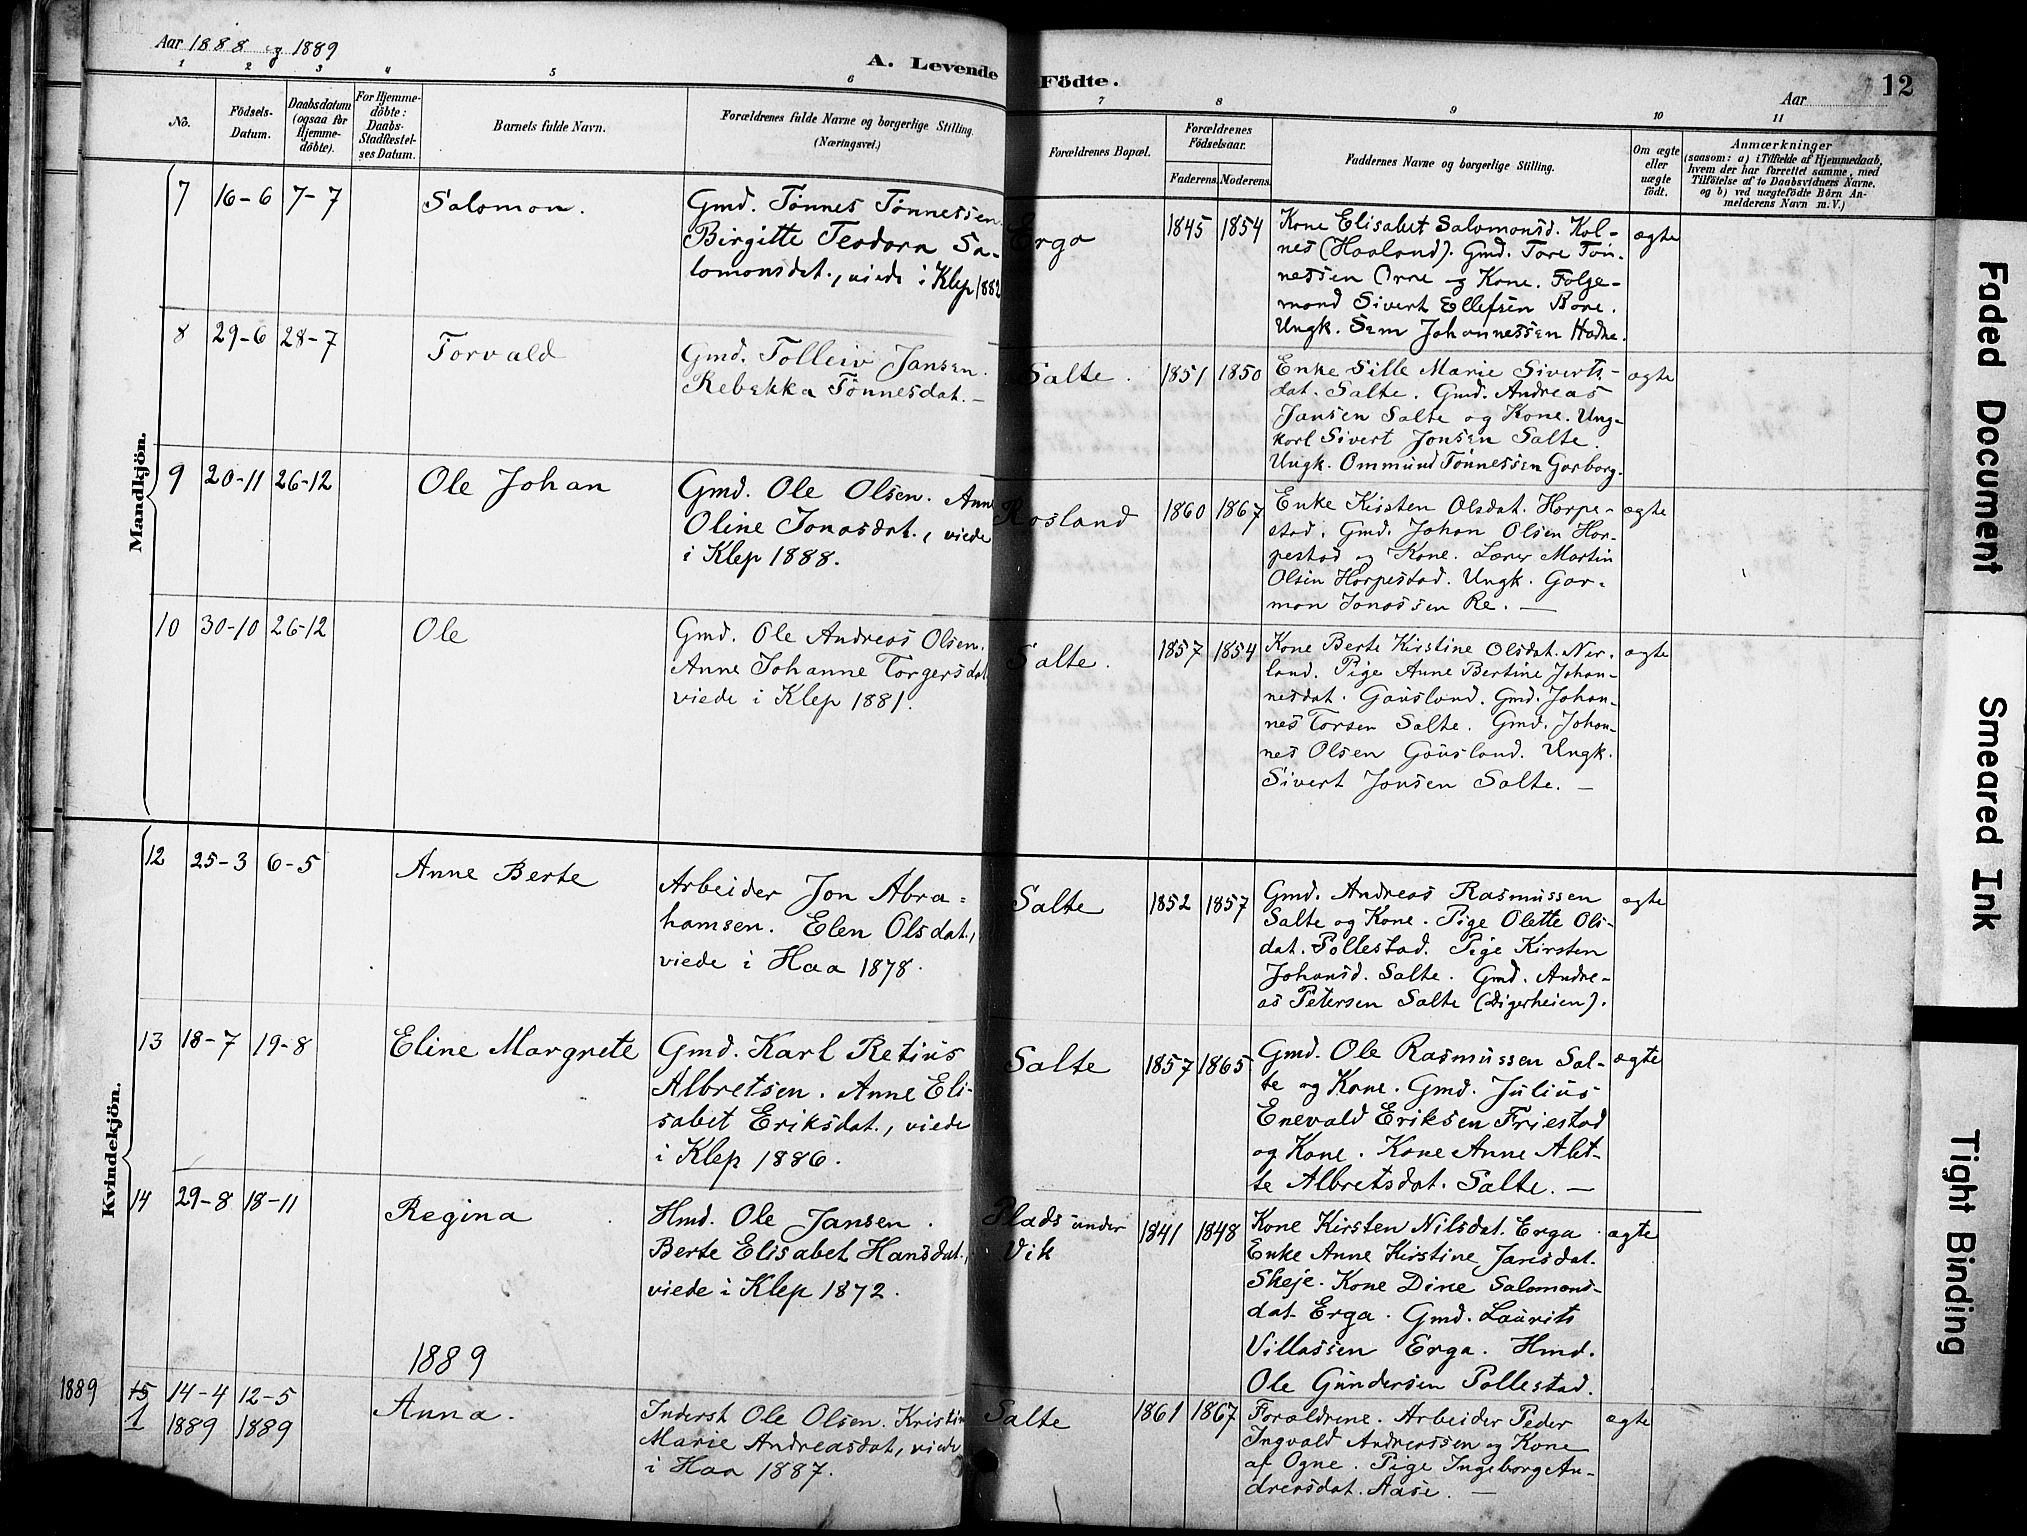 Aar 1888 og 1889
A. Levende Födte.
Aar
12
1 2 3 4 5 6 7 8 9 10 11
No.
Födsels-
Datum.
Daabsdatum
(ogsaa for
Hjemme-
döbte).
For Hjemme-
döbte:
Daabs-
Stadfæstel-
ses Datum.
Barnets fulde Navn.
Forældrenes fulde Navne og borgerlige Stilling.
(Næringsvei.)
Forældrenes Bopæl.
Forældrenes
Födselsaar.
Faderens. Moderens.
Faddernes Navne og borgerlige Stilling.
Om ægte
eller
uægte
födt.
Anmærkninger
(saasom: a) i Tilfælde af Hjemmedaab,
hvem der har forrettet samme, med
Tilföielse af to Daabsvidners Navne.
og b) ved uægtefödte Börn An-
melderens Navn m. V.)
Mandkjön.
7 16-6 7-7
Salomon.
Gmd. Tönnes Tönnessen.
Birgitte Teodora Sa-
lomonsdat., viede i Klep 1882
Erga
1845 1854
Kone Elisabet Salomonsd. Kol-
nes (Haaland). Gmd. Tore Tön-
nessen Orre og Kone. Følge-
mand Sivert Ellefsen Bore.
Ungk. Sem Johannessen Hodne.
ægte
8 29-6 28-7
Torvald
Gmd. Tolleiv Jansen.
Rebekka Tönnesdat. —
Salte.
1851 1850
Enke Sille Marie Siverts-
dat. Salte. Gmd. Andreas
Jansen Salte og Kone. Ung-
karl Sivert Jonsen Salte.
Ungk. Ommund Tönnessen Garborg.
ægte
9 20-11 26-12
Ole Johan
Gmd. Ole Olsen. Anne
Oline Jonasdat., viede
i Klep 1888.
Rosland
1860 1867
Enke Kirsten Olsdat. Horpe-
stad. Gmd. Johan Olsen Hor-
pestad og Kone. Lærer Martin
Olsen Horpestad. Ungk. Gar-
mon Jonassen Re. —
ægte
10 30-10 26-12
Ole
Gmd. Ole Andreas Olsen.
Anne Johanne Torgersdat
viede i Klep 1881.
Salte.
1857 1854
Kone Berte Kirstine Olsdat. Nær-
land. Pige Anne Bertine Johan-
nesdat. Gausland. Gmd. Johan-
nes Torsen Salte. Gmd. Johan-
nes Olsen Gausland. Ungk.
Sivert Jonsen Salte. —
ægte
Kvindekjön.
12 25-3 6-5
Anne Berte
Arbeider Jon Abra-
hamsen. Elen Olsdat.,
viede i Haa 1878.
Salte
1852 1857
Gmd. Andreas Rasmussen
Salte og Kone. Pige Olette Ols-
dat. Pollestad. Pige Kirsten
Johansd. Salte. Gmd. Andre-
as Petersen Salte (Digerheien).
ægte
13 18-7 19-8
Eline Margrete
Gmd. Karl Retius
Albretsen. Anne Eli-
sabet Eriksdat., viede
i Klep 1886.
Salte
1857 1865
Gmd. Ole Rasmussen Sal-
te og Kone. Gmd. Julius
Enevald Eriksen Friestad
og Kone. Kone Anne Alet-
te Albretsdat. Salte. —
ægte
14 29-8 18-11
Regina
Hmd. Ole Jansen.
Berte Elisabet Hansdat.,
viede i Klep 1872.
Plads under
Vik
1841 1848
Kone Kirsten Nilsdat. Erga
Enke Anne Kirstine Jansdat.
Skeje. Kone Dine Salomons-
dat. Erga. Gmd. Laurits
Villassen Erga. Hmd.
Ole Gundersen Pollestad.
ægte
1889
1889
15 14-4 12-5
1 1889 1889
Anna.
Inderst Ole Olsen. Kristine
Marie Andreasdat., viede
i Haa 1887.
Salte
1861 1867
Forældrene. Arbeider Peder
Ingvald Andreassen og Kone
af Ogne. Pige Ingeborg An-
dreasdat. Aase. —
ægte
Faded Document
Smeared Ink
Tight Binding